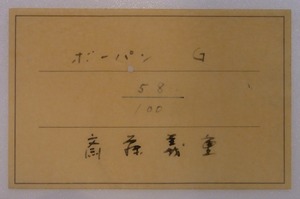 ボーパン G
58
100
斎藤義重